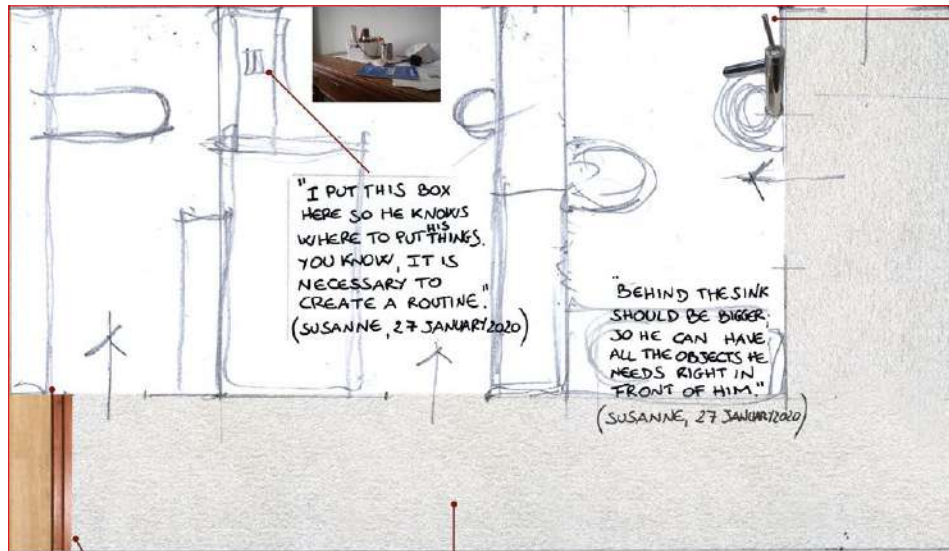 "I PUT THIS BOX
HERE SO HE KNOWS
WHERE TO PUT HIS THINGS.
YOU KNOW, IT IS
NECESSARY TO
CREATE A ROUTINE."
(SUSANNE, 27 JANUARY 2020)
"BEHIND THE SINK
SHOULD BE BIGGER,
SO HE CAN HAVE
ALL THE OBJECTS HE
NEEDS RIGHT IN
FRONT OF HIM."
(SUSANNE, 27 JANUARY 2020)